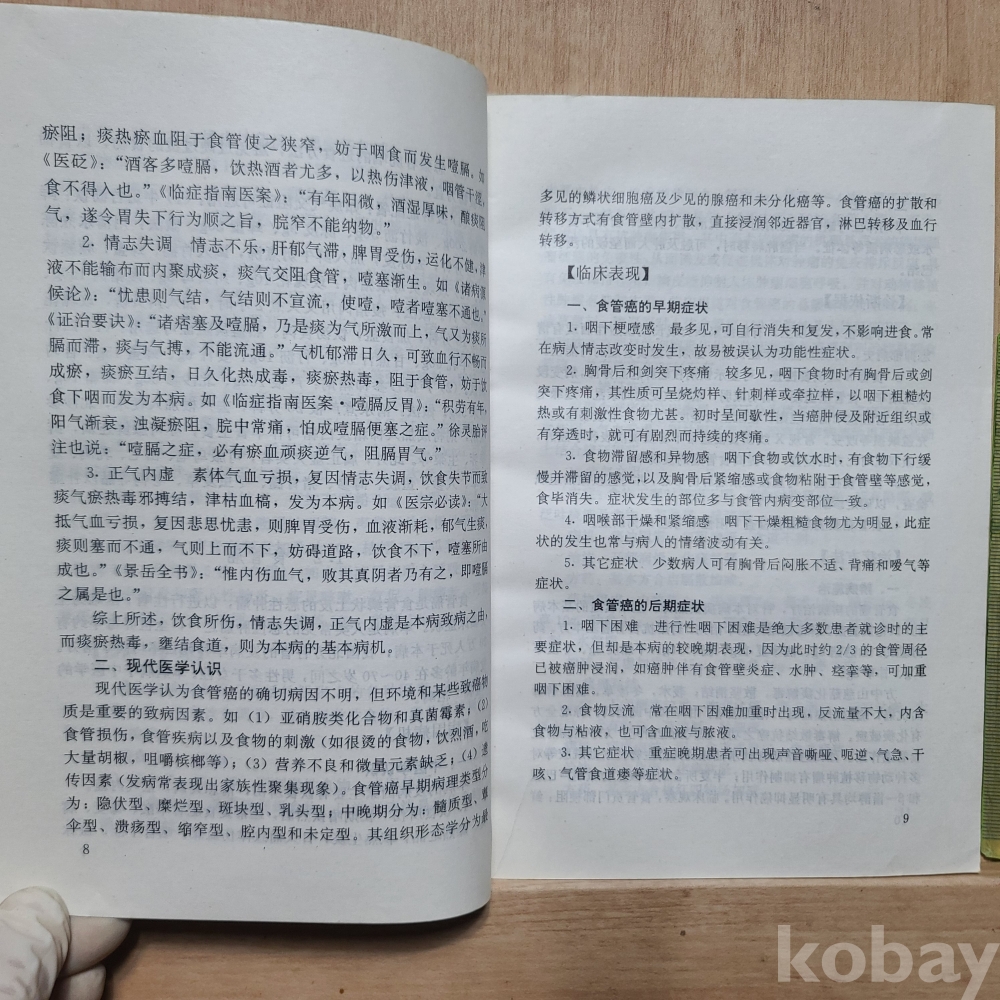 瘀阻；痰热瘀血阻于食管使之狭窄，妨于咽食而发生噎膈。如
《医砭》：“酒客多噎膈，饮热酒者尤多，以热伤津液，咽管干涩，
食不得入也。”《临症指南医案》：“有年阳微，酒湿厚味，酿痰阻
气，遂令胃失下行为顺之旨，脘窄不能纳物。”
2．情志失调　情志不乐，肝郁气滞，脾胃受伤，运化不健，津
液不能输布而内聚成痰，痰气交阻食管，噎塞渐生。如《诸病源
候论》：“忧患则气结，气结则不宣流，使噎，噎者噎塞不通也。”
《证治要诀》：“诸痞塞及噎膈，乃是痰为气所激而上，气又为痰所
膈而滞，痰与气搏，不能流通。”气机郁滞日久，可致血行不畅而
成瘀，痰瘀互结，日久化热成毒，痰瘀热毒，阻于食管，妨于饮
食下咽而发为本病。如《临症指南医案·噎膈反胃》：“积劳有年，
阳气渐衰，浊凝瘀阻，脘中常痛，怕成噎膈便塞之症。”徐灵胎评
注也说：“噎膈之症，必有瘀血顽痰逆气，阻膈胃气。”
3．正气内虚　素体气血亏损，复因情志失调，饮食失节而致
痰气瘀热毒邪搏结，津枯血槁，发为本病。如《医宗必读》：“大
抵气血亏损，复因悲思忧恚，则脾胃受伤，血液渐耗，郁气生痰，
痰则塞而不通，气则上而不下，妨碍道路，饮食不下，噎塞所由
成也。”《景岳全书》：“惟内伤血气，败其真阴者乃有之，即噎膈
之属是也。”
综上所述，饮食所伤，情志失调，正气内虚是本病致病之由，
而痰瘀热毒，壅结食道，则为本病的基本病机。
二、现代医学认识
现代医学认为食管癌的确切病因不明，但环境和某些致癌物
质是重要的致病因素。如（1）亚硝胺类化合物和真菌霉素；（2）
食管损伤，食管疾病以及食物的刺激（如很烫的食物，饮烈酒，吃
大量胡椒，咀嚼槟榔等）；（3）营养不良和微量元素缺乏；（4）遗
传因素（发病常表现出家族性聚集现象）。食管癌早期病理类型分
为：隐伏型、糜烂型、斑块型、乳头型；中晚期分为：髓质型、蕈
伞型、溃疡型、缩窄型、腔内型和未定型。其组织形态学分为最
8
多见的鳞状细胞癌及少见的腺癌和未分化癌等。食管癌的扩散和
转移方式有食管壁内扩散，直接浸润邻近器官，淋巴转移及血行
转移。
【临床表现】
一、食管癌的早期症状
1．咽下梗噎感　最多见，可自行消失和复发，不影响进食。常
在病人情志改变时发生，故易被误认为功能性症状。
2．胸骨后和剑突下疼痛　较多见，咽下食物时有胸骨后或剑
突下疼痛，其性质可呈烧灼样、针刺样或牵拉样，以咽下粗糙灼
热或有刺激性食物尤甚。初时呈间歇性，当癌肿侵及附近组织或
有穿透时，就可有剧烈而持续的疼痛。
3．食物滞留感和异物感　咽下食物或饮水时，有食物下行缓
慢并滞留的感觉，以及胸骨后紧缩感或食物粘附于食管壁等感觉，
食毕消失。症状发生的部位多与食管内病变部位一致。
4．咽喉部干燥和紧缩感　咽下干燥粗糙食物尤为明显，此症
状的发生也常与病人的情绪波动有关。
5．其它症状　少数病人可有胸骨后闷胀不适、背痛和嗳气等
症状。
二、食管癌的后期症状
1．咽下困难　进行性咽下困难是绝大多数患者就诊时的主
要症状，但却是本病的较晚期表现，因为此时约 2/3 的食管周径
已被癌肿浸润，如癌肿伴有食管壁炎症、水肿、痉挛等，可加重
咽下困难。
2．食物反流　常在咽下困难加重时出现，反流量不大，内含
食物与粘液，也可含血液与脓液。
3．其它症状　重症晚期患者可出现声音嘶哑、呃逆、气急、干
咳、气管食道瘘等症状。
9
kobay